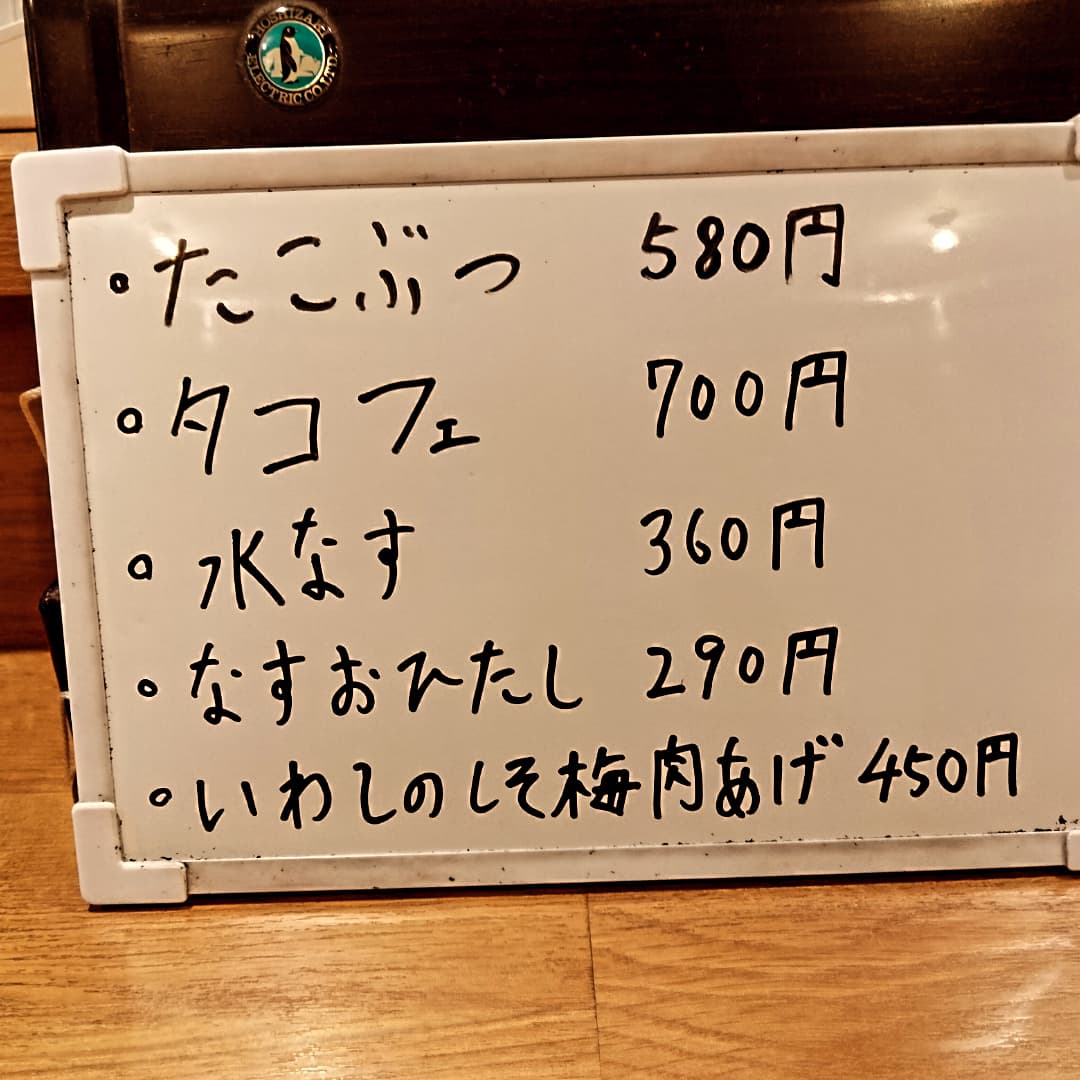 HOSHIZAKI
ELECTRIC CO.,LTD.
・たこぶつ 580円
・タコフェ 700円
・水なす 360円
・なすおひたし 290円
・いわしのしそ梅肉あげ 450円